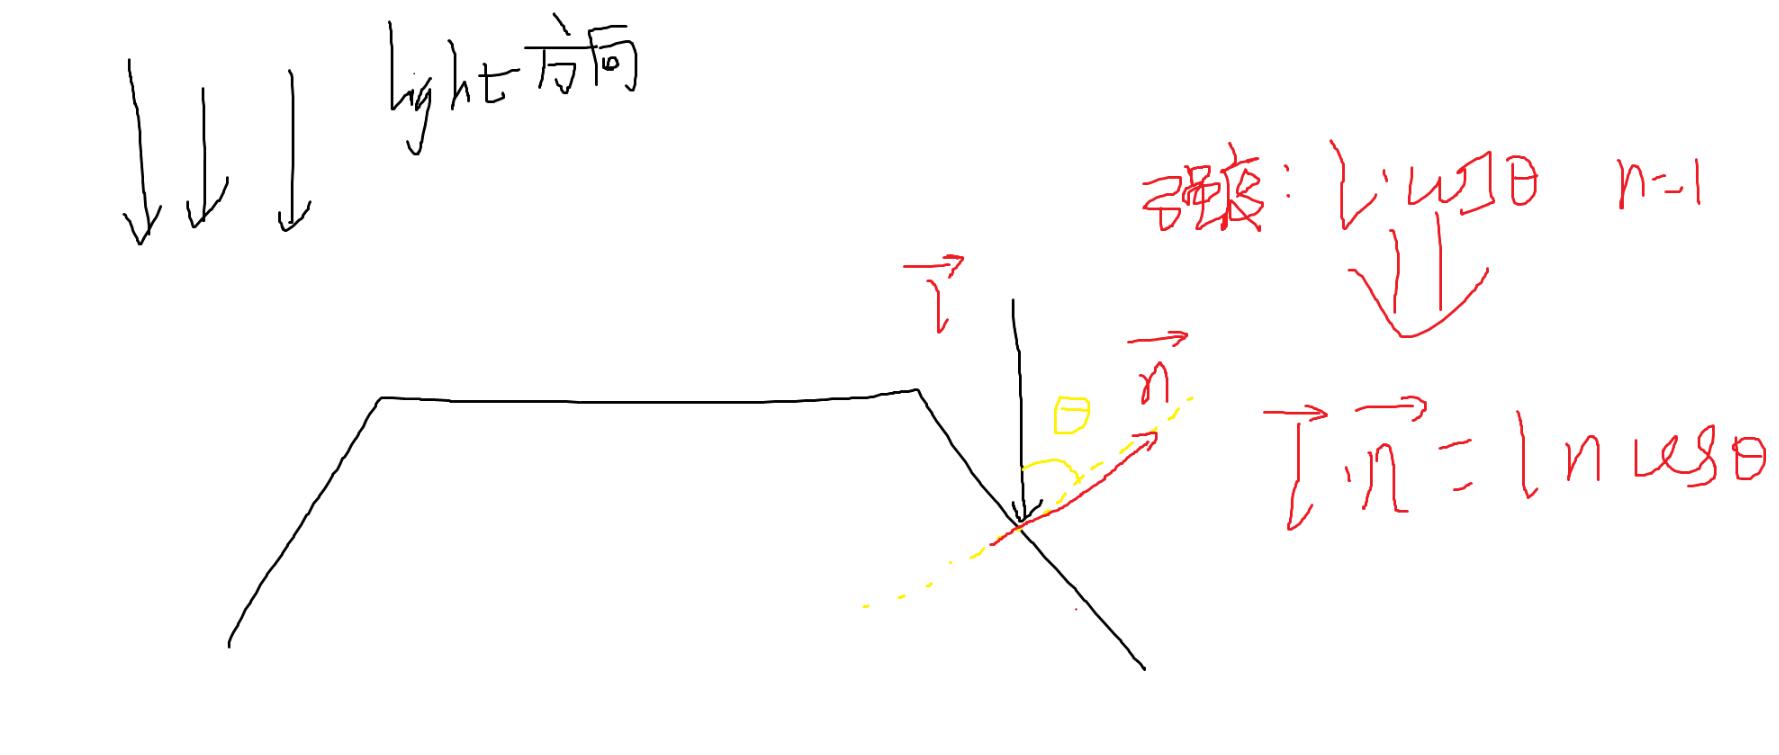 light方向
强度: l·cosθ n=1
l
n
θ
l·n = l n cosθ